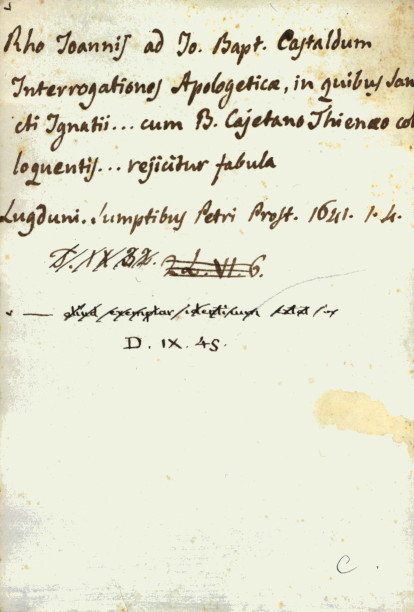 Rho Joannis ad Jo. Bapt. Castaldum
Interrogationes Apologeticæ, in quibus San
cti Ignatii... cum B. Cajetano Thienæo col
loquentis... rejicitur fabula
Lugduni. Sumptibus Petri Prost. 1641. 1.4.
VI. 6.
aliud exemplar identicum extat in
D. IX. 45.
C.